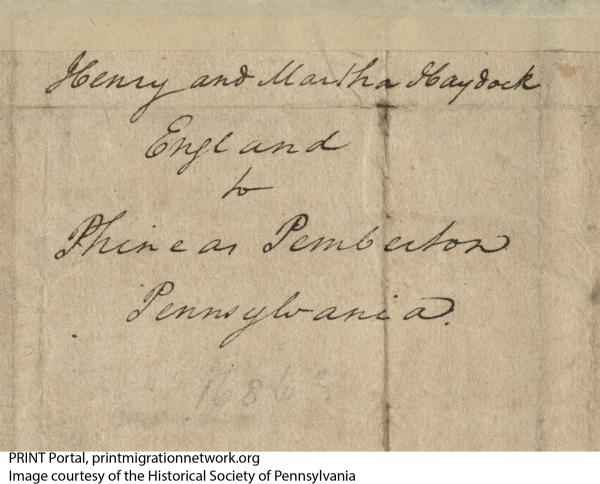 Henry and Martha Haydock
England
to
Phineas Pemberton
Pennsylvania.
1686
PRINT Portal, printmigrationnetwork.org
Image courtesy of the Historical Society of Pennsylvania